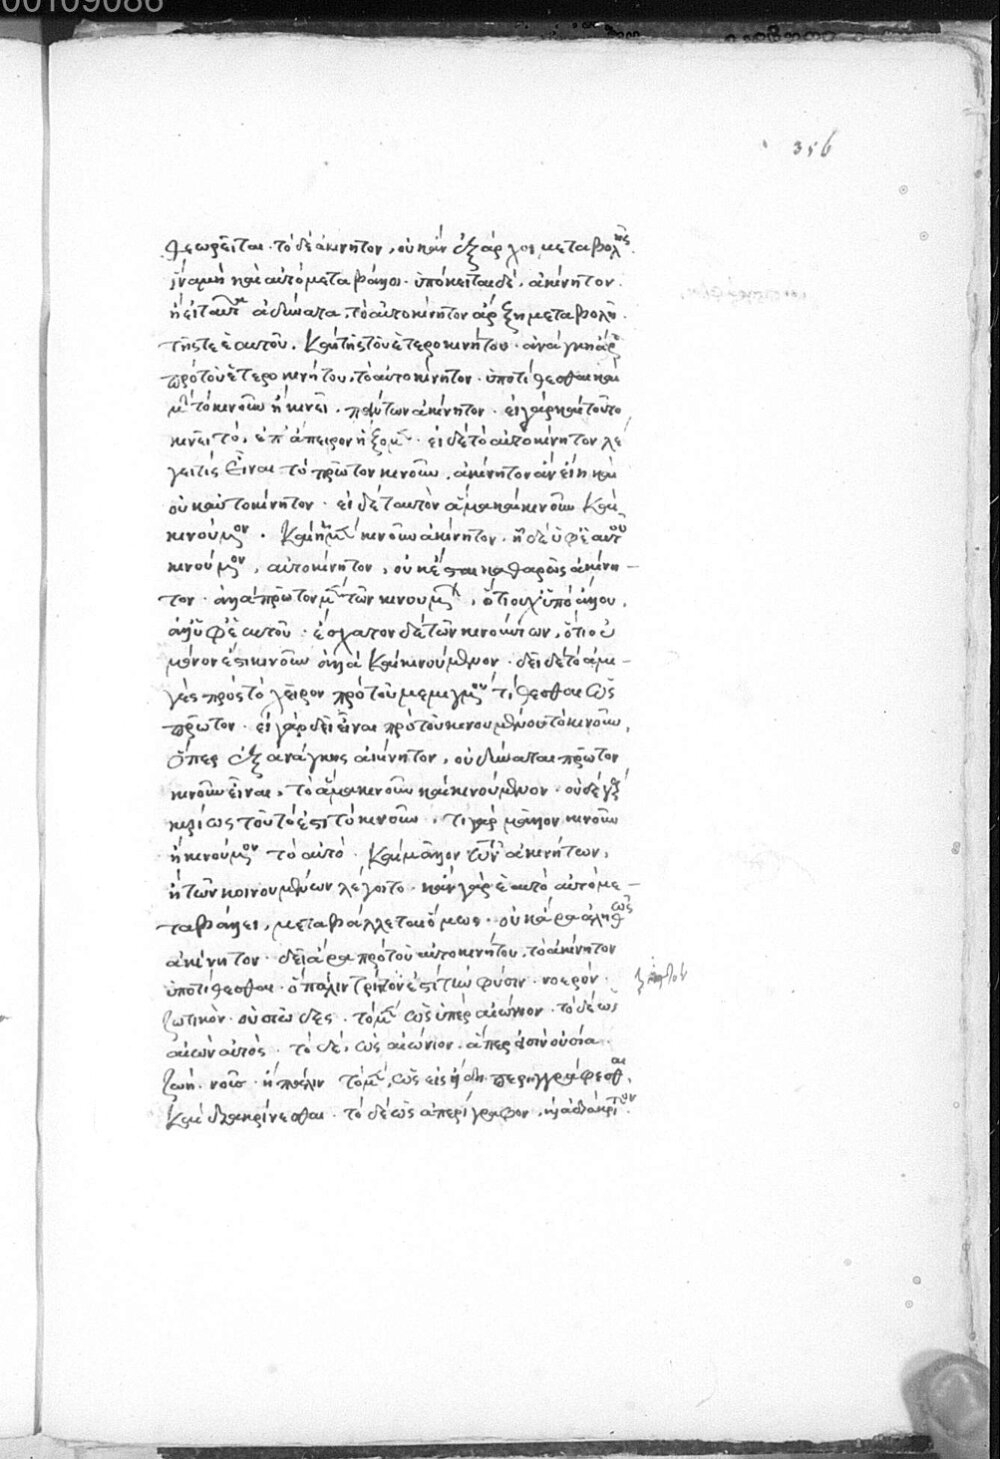 00109086
356
θεωρεῖται · τὸ δὲ ἀκίνητον, οὐκ ἂν ἐξάρχοι μεταβολῆς
ἵνα μὴ καὶ αὐτὸ μεταβάλλοι · ὑπόκειται δὲ, ἀκίνητον ·
ἢ εἰ ταῦτα ἀδύνατα, τὸ αὐτοκίνητον ἄρξει μεταβολῆς
τῆς τε ἑαυτοῦ, καὶ τῆς τοῦ ἑτεροκινήτου · ἀνάγκη ἄρα
πρὸ τοῦ ἑτεροκινήτου, τὸ αὐτοκίνητον ὑποτίθεσθαι καὶ
μὴν τὸ κινοῦν ᾗ κινεῖ, πάντων ἀκίνητον · εἰ γὰρ καὶ τοῦτο
κινεῖταί, ἐπ' ἄπειρον ἥξομεν · εἰ δὲ τὸ αὐτοκίνητον λέ
γει τίς εἶναι τὸ πρῶτον κινοῦν, ἀκίνητον ἂν εἴη καὶ
οὐκ αὐτοκίνητον · εἰ δὲ ταυτὸν ἅμα καὶ κινοῦν καὶ
κινούμενον · καὶ ᾗ μὲν κινοῦν ἀκίνητον · ᾗ δὲ ὑφ' ἑαυτοῦ
κινούμενον, αὐτοκίνητον, οὐκ ἔσται καθαρῶς ἀκίνη -
τον · ἀλλὰ πρῶτον μὲν τῶν κινουμένων, ὅτι οὐχ ὑπὸ ἄλλου,
ἀλλ' ὑφ' ἑαυτοῦ · ἔσχατον δὲ τῶν κινούντων, ὅτι οὐ
μόνον ἐστὶ κινοῦν ἀλλὰ καὶ κινούμενον · δεῖ δὲ τὸ ἀμι -
γὲς πρὸς τὸ χεῖρον πρὸ τοῦ μεμιγμένου τίθεσθαι ὡς
πρῶτον · εἰ γὰρ δεῖ εἶναι πρὸ τοῦ κινουμένου τὸ κινοῦν,
ὅπερ ἐξ ἀνάγκης ἀκίνητον, οὐ δύναται πρῶτον
κινοῦν εἶναι, τὸ ἅμα κινοῦν καὶ κινούμενον · οὐδὲ γὰρ
κυρίως τοῦτό ἐστι τὸ κινοῦν, τί γὰρ μᾶλλον κινοῦν
ἢ κινούμενον τὸ αὐτό · καὶ μᾶλλον τῶν ἀκινήτων,
ἢ τῶν κινουμένων λέγοιτο · κἂν γὰρ ἑαυτὸ αὐτὸ με -
ταβάλλει, μεταβάλλεται ὅμως · οὐκ ἄρα ἀληθῶς
ἀκίνητον · δεῖ ἄρα πρὸ τοῦ αὐτοκινήτου, τὸ ἀκίνητον
ὑποτίθεσθαι · ὃ πάλιν τριττόν ἐστι τὴν φύσιν · νοερόν ·
ζωτικὸν · οὐσιῶδες · τὸ μὲν ὡς ὑπὲρ αἰώνιον · τὸ δὲ ὡς
αἰὼν αὐτὸς · τὸ δὲ, ὡς αἰώνιον · ἅπερ ἐστὶν οὐσία ·
ζωὴ · νοῦς · ἢ πάλιν τὸ μὲν, ὡς εἰς ἤδη περιγράφεσθαι,
καὶ διακρίνεσθαι · τὸ δὲ ὡς ἀπερίγραφον, καὶ ἀδιάκριτον ·